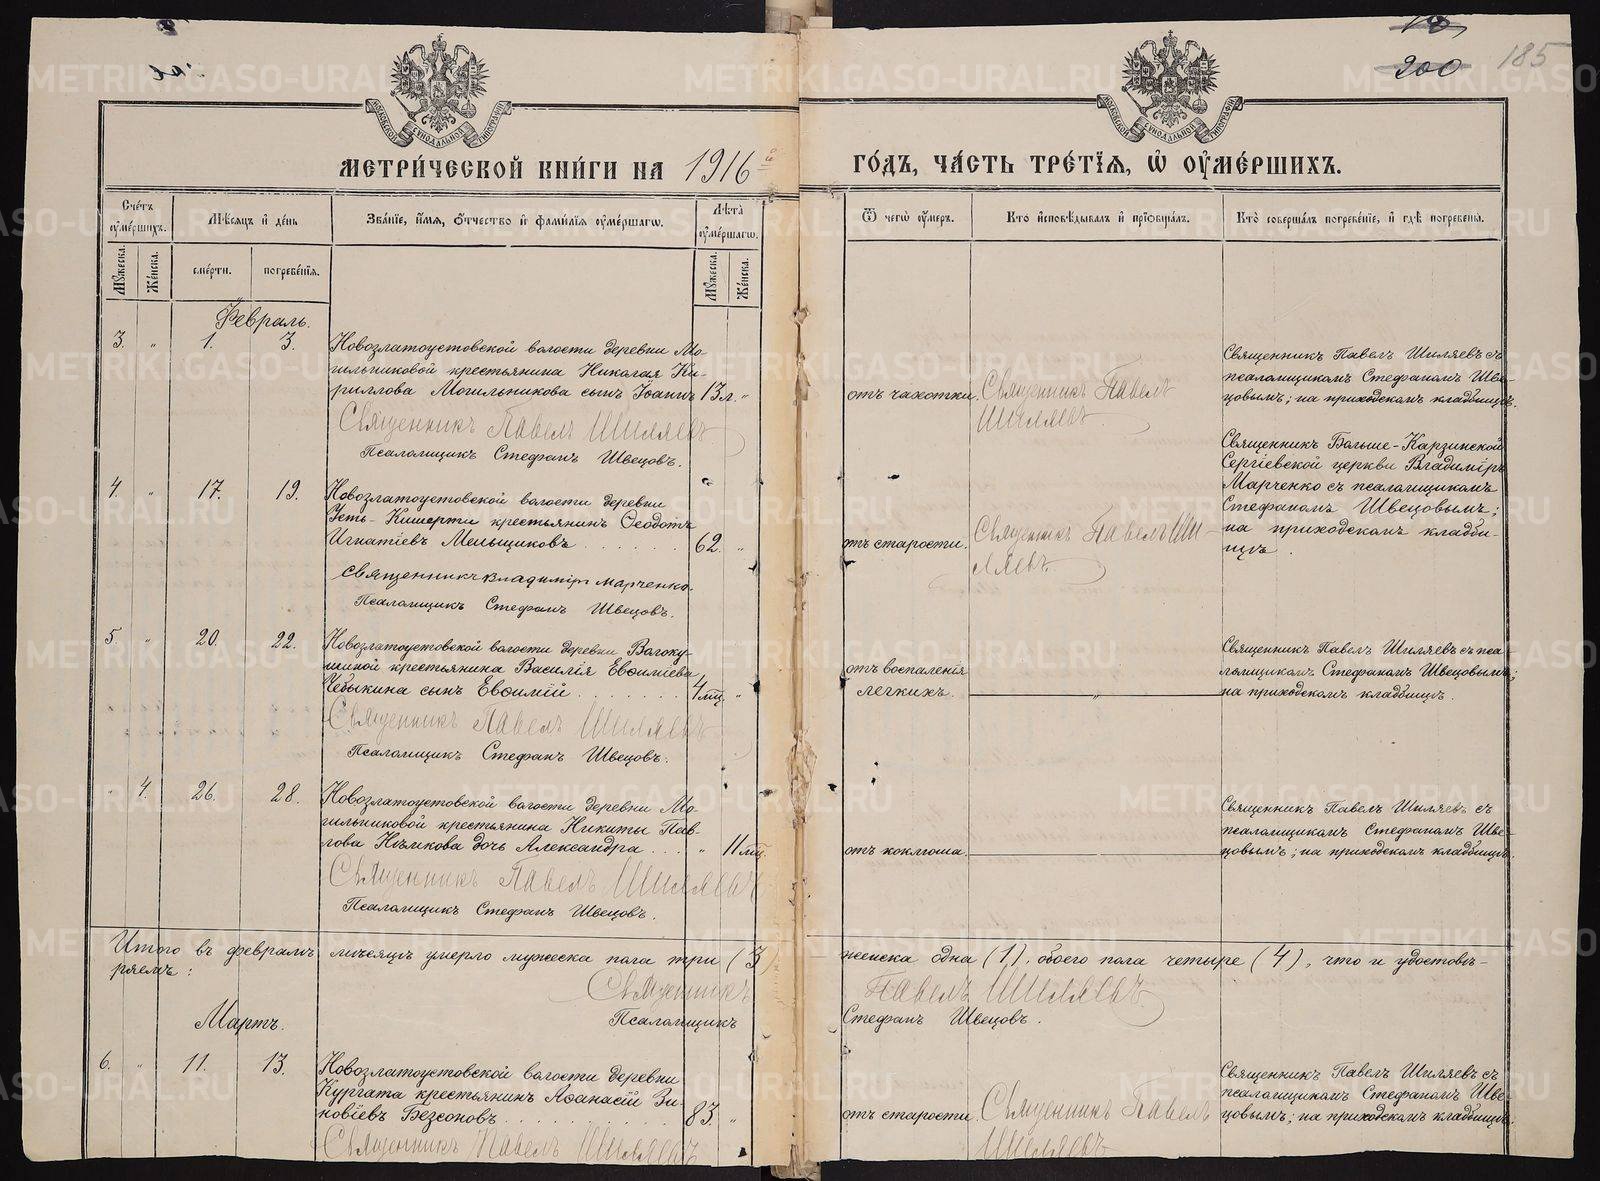 18
200
185
МОСКОВСКОЙ СУНОДАЛЬНОЙ ТИПОГРАФІИ
МОСКОВСКОЙ СУНОДАЛЬНОЙ ТИПОГРАФІИ
МЕТРИ́ЧЕСКОЙ КНИ́ГИ НА 1916 й
ГО́ДЪ, ЧА́СТЬ ТРЕ́ТІЯ, Ѡ ОУМЕ́РШИХЪ.
Сче́тъ оуме́ршихъ.
Мѣ́сяцъ и де́нь
Зва́ніе, и́мя, о́тчество и фами́лія оуме́ршагѡ.
Лѣ́та оуме́ршагѡ.
Ѿ чегѡ̀ оу́меръ.
Кто̀ исповѣ́дывалъ и пріѡбща́лъ.
Кто̀ соверша́лъ погребе́ніе, и гдѣ̀ погребены̀.
Му́жеска.
Же́нска.
сме́рти.
погребе́нія.
Му́жеска.
Же́нска.
Февраль.
3. " 1. 3.
Новозлатоустовской волости деревни Мо-
гильниковой крестьянина Николая Ки-
риллова Могильникова сынъ Іоаннъ 13 л. "
Священникъ Павелъ Шиляевъ
Псаломщикъ Стефанъ Швецовъ.
отъ чахотки.
Священникъ Павелъ
Шиляевъ.
Священникъ Павелъ Шиляевъ съ
псаломщикомъ Стефаномъ Шве-
цовымъ; на приходскомъ кладбищѣ.
4. " 17. 19.
Новозлатоустовской волости деревни
Усть-Кишерти крестьянинъ Ѳеодотъ
Игнатіевъ Мельщиковъ . . . . . . 62. "
Священникъ Владиміръ Марченко.
Псаломщикъ Стефанъ Швецовъ.
отъ старости.
Священникъ Павелъ Ши-
ляевъ.
Священникъ Больше-Карзинской
Сергіевской церкви Владиміръ
Марченко съ псаломщикомъ
Стефаномъ Швецовымъ;
на приходскомъ кладби-
щѣ.
5. " 20. 22.
Новозлатоустовской волости деревни Волоку-
шиной крестьянина Василія Евѳиміева
Чебыкина сынъ Евѳимій . . . . . . 4 мц. "
Священникъ Павелъ Шиляевъ
Псаломщикъ Стефанъ Швецовъ.
отъ воспаленія
легкихъ.
"
Священникъ Павелъ Шиляевъ съ пса-
ломщикомъ Стефаномъ Швецовымъ;
на приходскомъ кладбищѣ.
" 4. 26. 28.
Новозлатоустовской волости деревни Мо-
гильниковой крестьянина Никиты Пав-
лова дочь Александра . . . " 11 мц.
Священникъ Павелъ Шиляевъ
Псаломщикъ Стефанъ Швецовъ.
отъ коклюша.
Священникъ Павелъ Шиляевъ съ
псаломщикомъ Стефаномъ Шве-
цовымъ; на приходскомъ кладбищѣ.
Итого въ февралѣ мѣсяцѣ умерло мужеска пола три (3) женска одна (1), обоего пола четыре (4), что и удостовѣ-
ряемъ:
Священникъ Павелъ Шиляевъ
Псаломщикъ Стефанъ Швецовъ.
Мартъ.
6. " 11. 13.
Новозлатоустовской волости деревни
Кургата крестьянинъ Аѳанасій Зи-
новіевъ Безсоновъ . . . . . . 83. "
Священникъ Павелъ Шиляевъ
отъ старости.
Священникъ Павелъ
Шиляевъ
Священникъ Павелъ Шиляевъ съ
псаломщикомъ Стефаномъ Шве-
цовымъ; на приходскомъ кладбищѣ.
METRIKI.GASO-URAL.RU